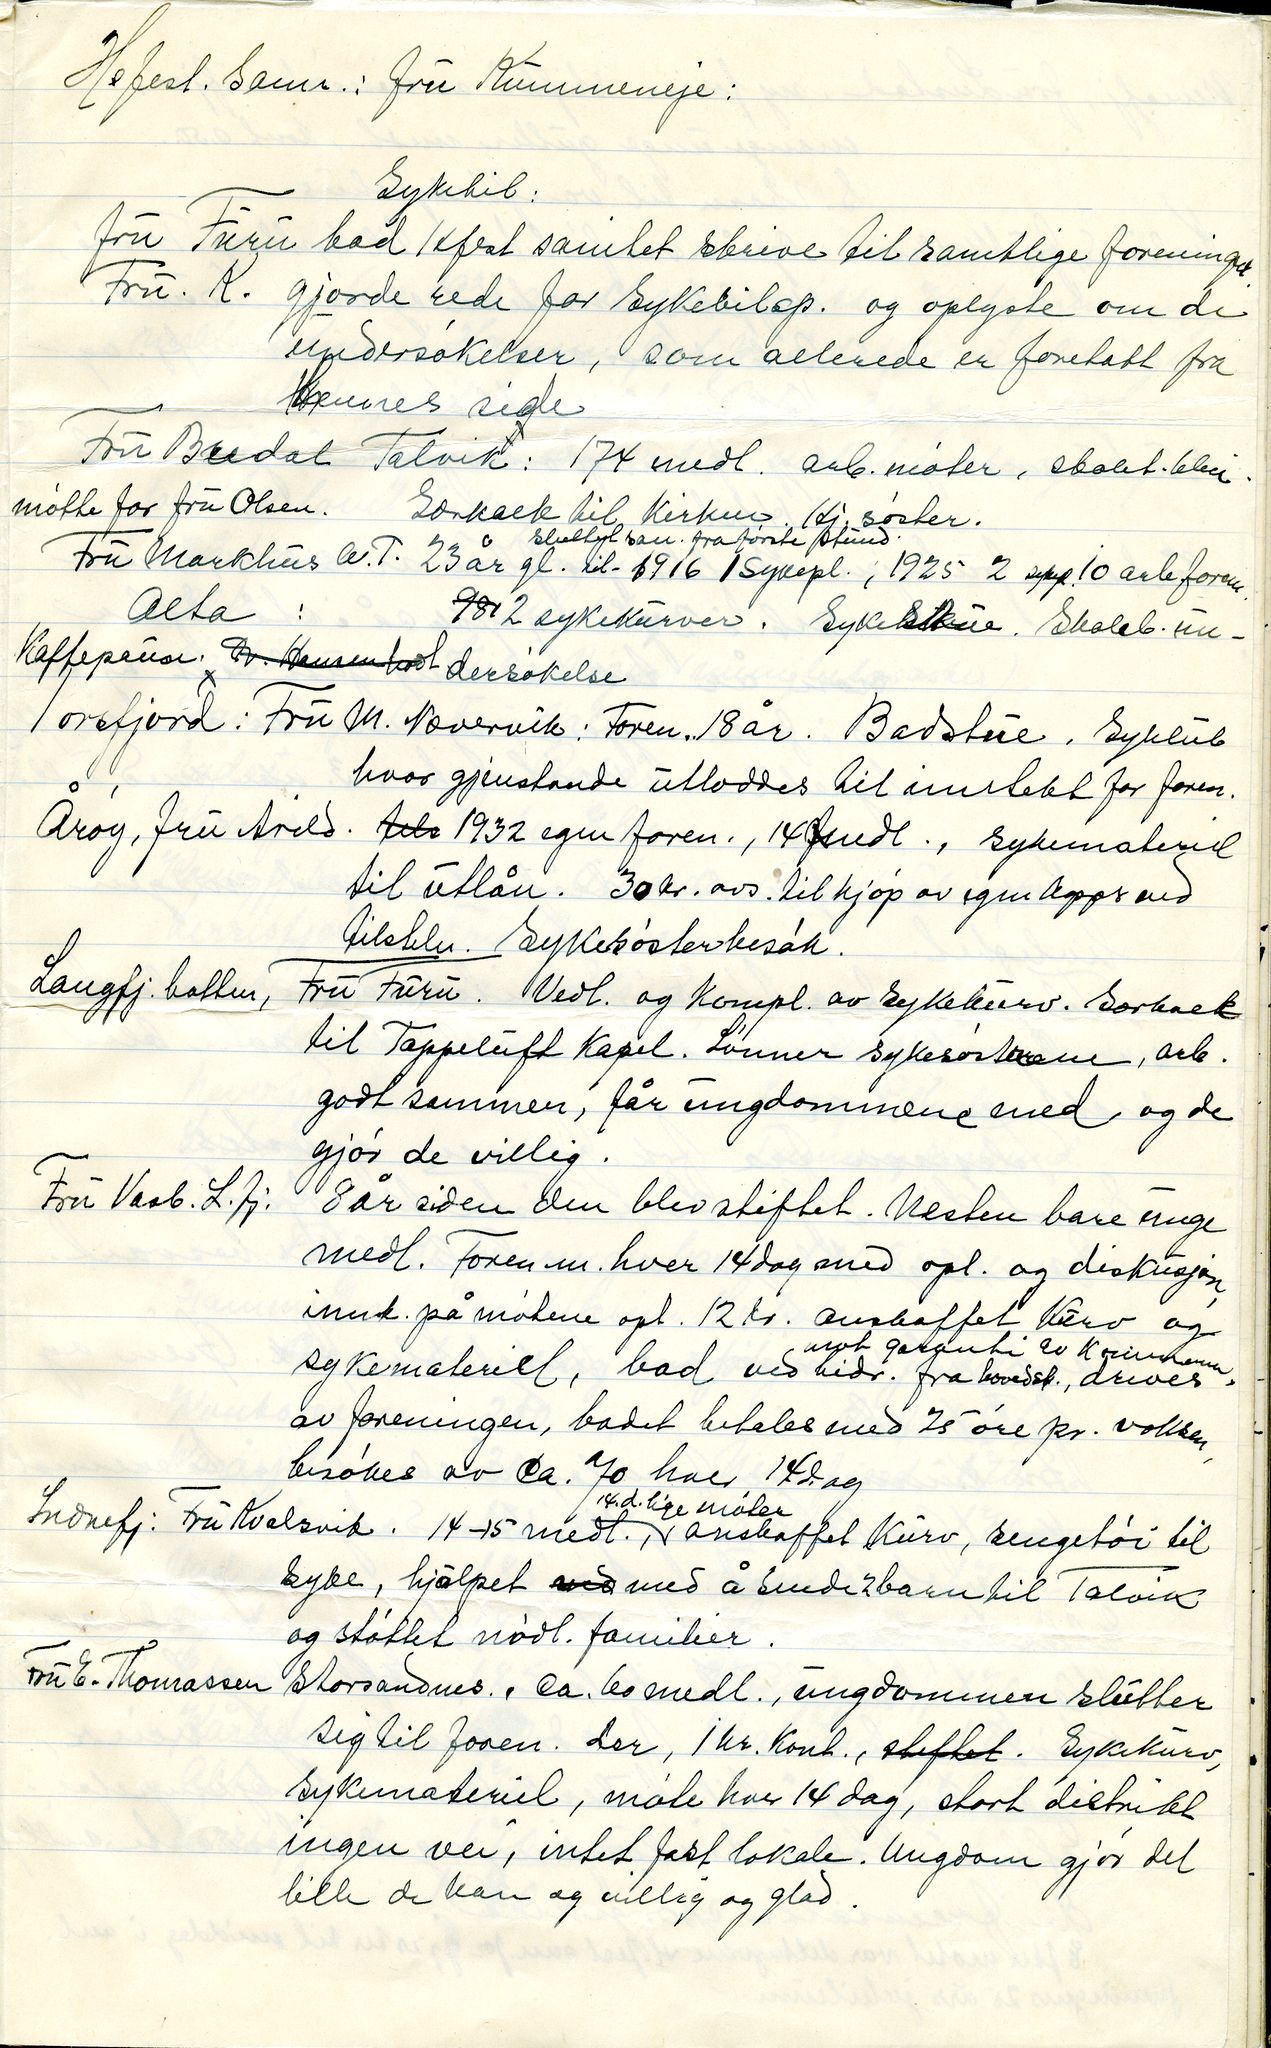 Hefest. Samr.: fru Kummeneje:
Sykebil:
fru Furu bad Hfest samlet skrive til samtlige foreninger
Fru. K. gjorde rede for Sykebilsp. og oplyste om de
undersøkelser, som allerede er foretatt fra
Hennes side
Fru Bredal Talvik: 174 medl. arb. møter, skolet.
møtte for fru Olsen. Særkalk til Kirken. Hj. søster.
san. fra første stund.
Fru Markhus A.T. 23 år gl. til 1916 1 Sykepl., 1925 2 spp. 10 arb foren.
Alta : 12 sykekurver. Sykestue. Skoleb. un-
Kaffepause. Dr. Hansen holdt dersøkelse
Torsfjord: Fru M. Nævervik: Foren. 18 år. Badstue. Syklub
hvor gjenstande utloddes til inntekt for foren.
Årøy, fru Arild. 1932 egen foren., 14 medl., Sykemateriel
til utlån. 30 kr. avs. til kjøp av egen Apps med
tilskln. Sykesøsterbesøk.
Langfj. botten, Fru Furu. Vedl. og Kompl. av Sykekurv. Særkalk
til Tappeluft Kapel. Lønner sykesøstrene, arb.
godt sammen, får ungdommene med, og de
gjør de villig.
Fru Vasb. L. fj. 8 år siden den blev stiftet. Nesten bare unge
medl. Foren. m. hver 14 dag med opl. og diskusjon,
innk. på møtene opt. 12 kr. anskaffet Kurv og
mot garanti av Kommunen
sykemateriell, bad ved bidr. fra hovedst., drives
av foreningen, badet betales med 25 øre pr. voksen,
besøkes av ca. 70 hver 14. dag
14. d. lige møter
Indrefj: Fru Kvalsvik. 14-15 medl., anskaffet Kurv, sengetøi til
syke, hjálpet med å sende 2 barn til Talvik
og støttet nødl. familier.
Fru E. Thomassen Storsandnes. ca. 60 medl., ungdommen slutter
sig til foren. der, 1 kr. Kont., stiftet. Sykekurv,
sykemateriel, møte hver 14 dag, stort distrikt
ingen vei, intet fast lokale. Ungdom gjør det
lille de kan og villig og glad.